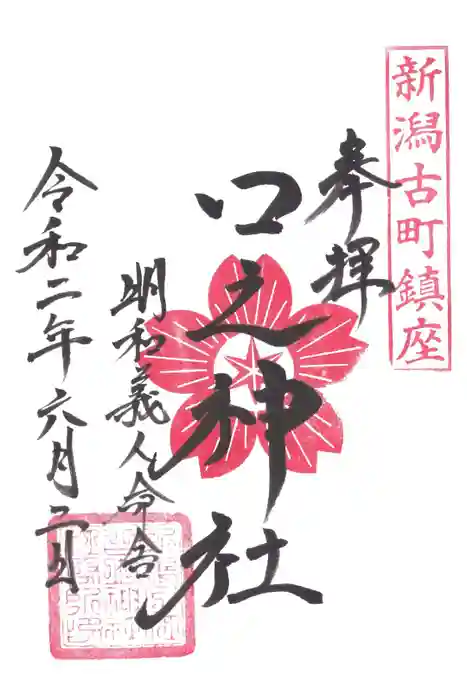 新潟古町鎮座
奉拝
口之神社
明和義人命舎
令和二年六月日